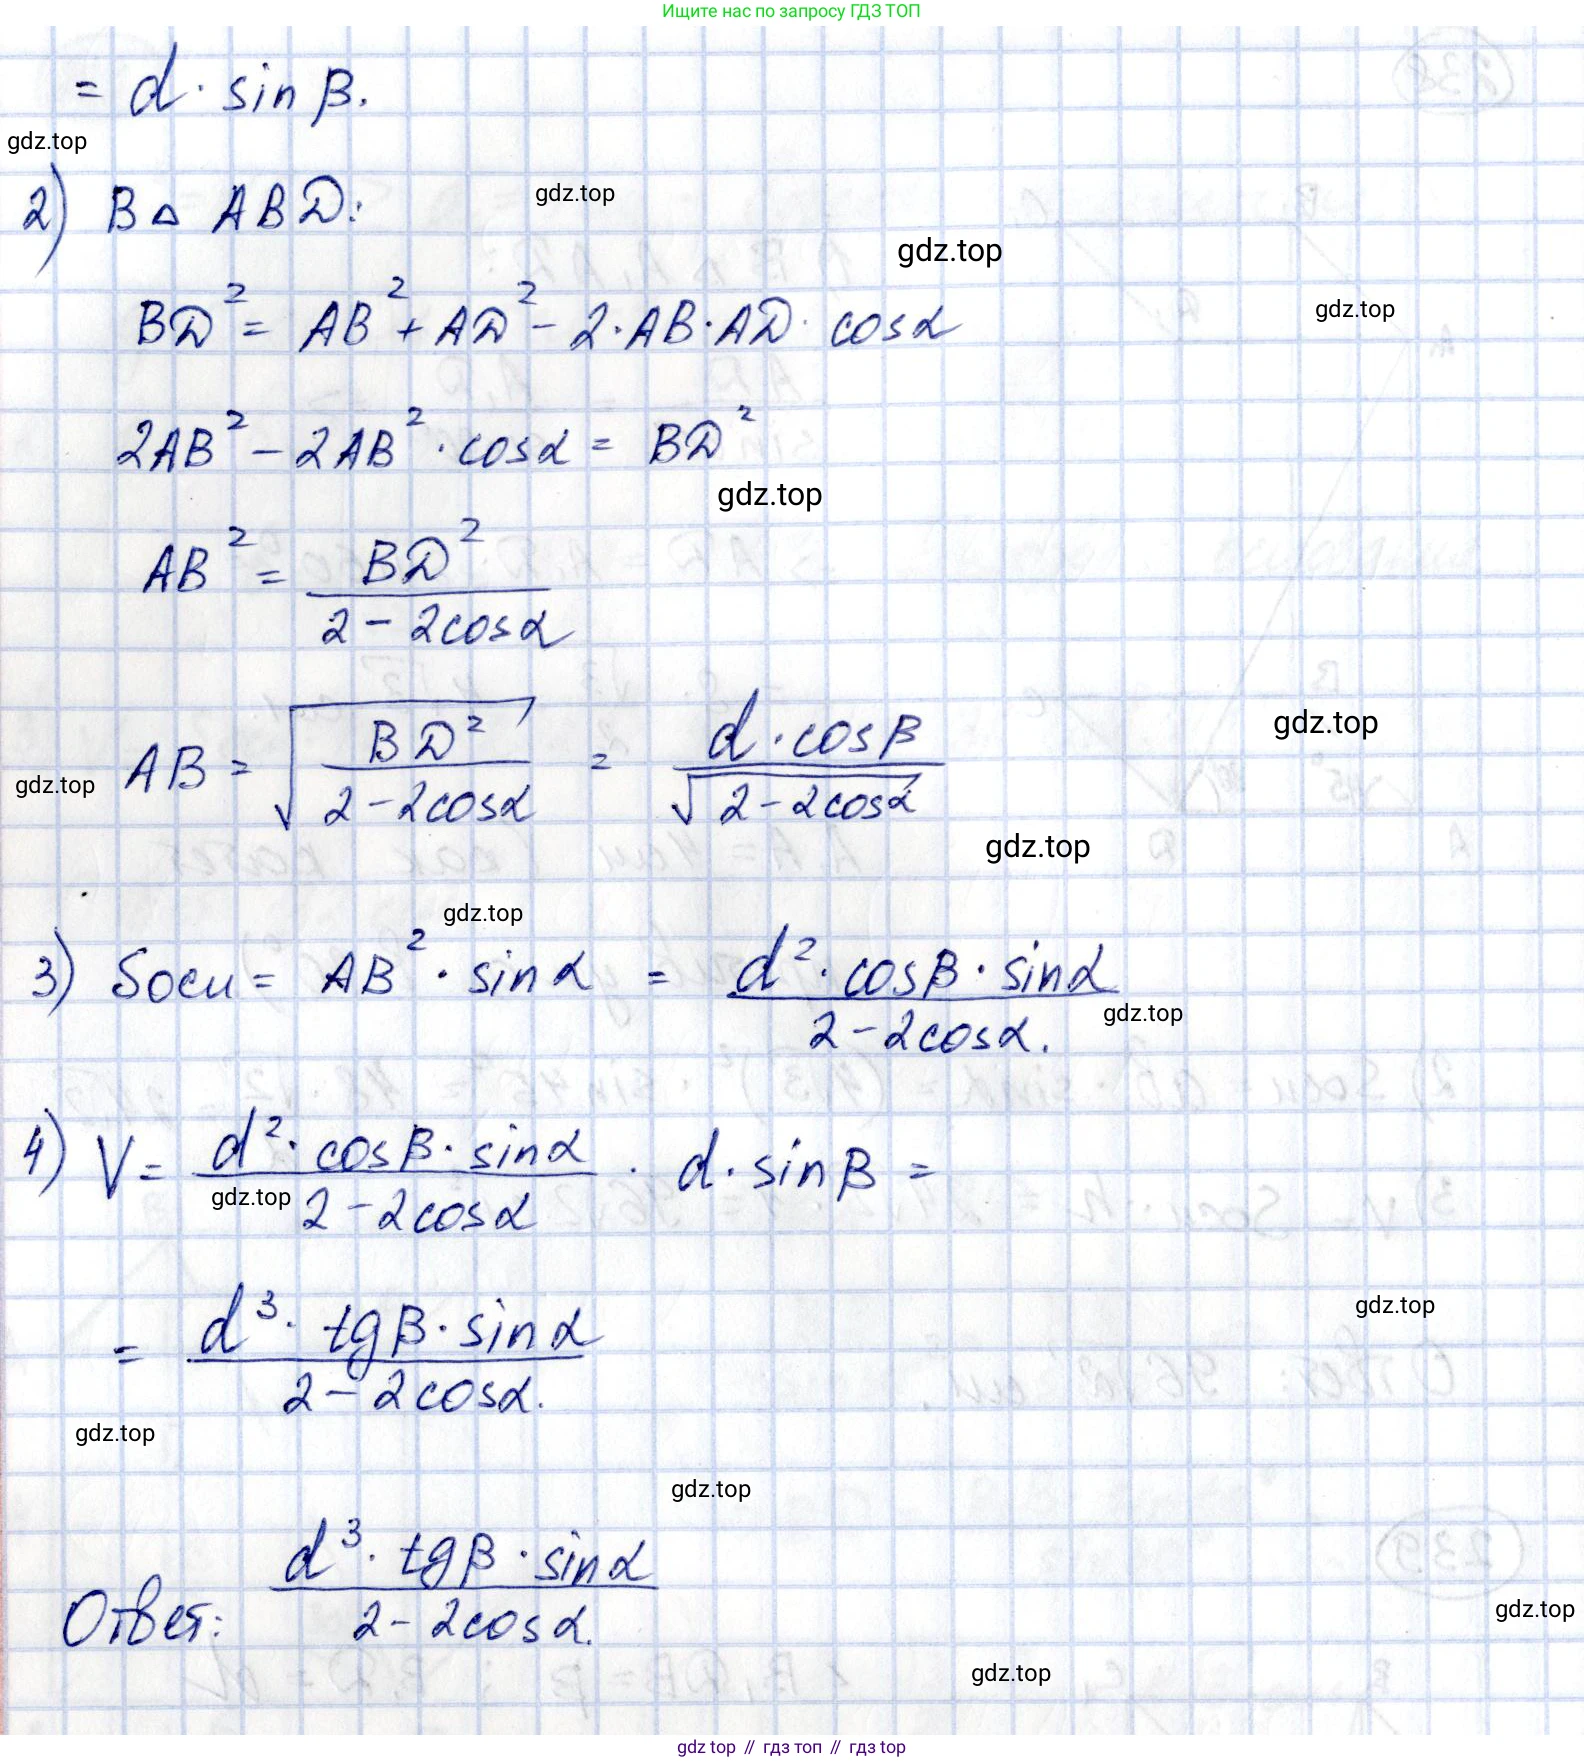 Ищите нас по запросу ГДЗ ТОП
= d · sin β.
gdz.top
2) В △ ABD:
gdz.top
gdz.top
BD² = AB² + AD² - 2 · AB · AD · cosα
gdz.top
2AB² - 2AB² · cosα = BD²
gdz.top
AB² = BD² / (2 - 2cosα)
gdz.top
AB = √(BD² / (2 - 2cosα)) = d · cosβ / √(2 - 2cosα)
gdz.top
gdz.top
gdz.top
3) Sосн = AB² · sinα = d² · cosβ · sinα / (2 - 2cosα).
gdz.top
4) V = d² · cosβ · sinα / (2 - 2cosα) · d · sinβ =
gdz.top
= d³ · tgβ · sinα / (2 - 2cosα).
gdz.top
gdz.top
gdz.top
Ответ: d³ · tgβ · sinα / (2 - 2cosα).
gdz.top
gdz.top
gdz top // гдз топ // гдз top